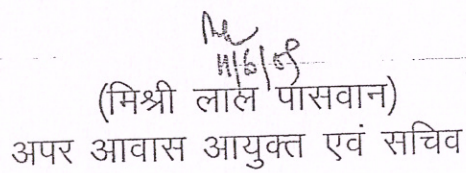 11/6/09
(मिश्री लाल पासवान)
अपर आवास आयुक्त एवं सचिव